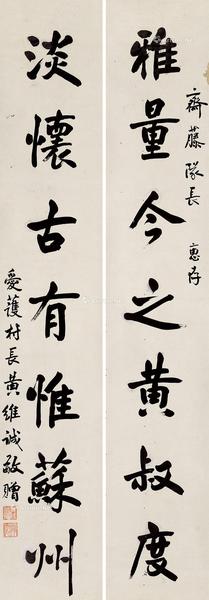 齋藤隊長 惠存
雅量今之黄叔度
淡懷古有惟蘇州
愛護村長黄維誠敬贈